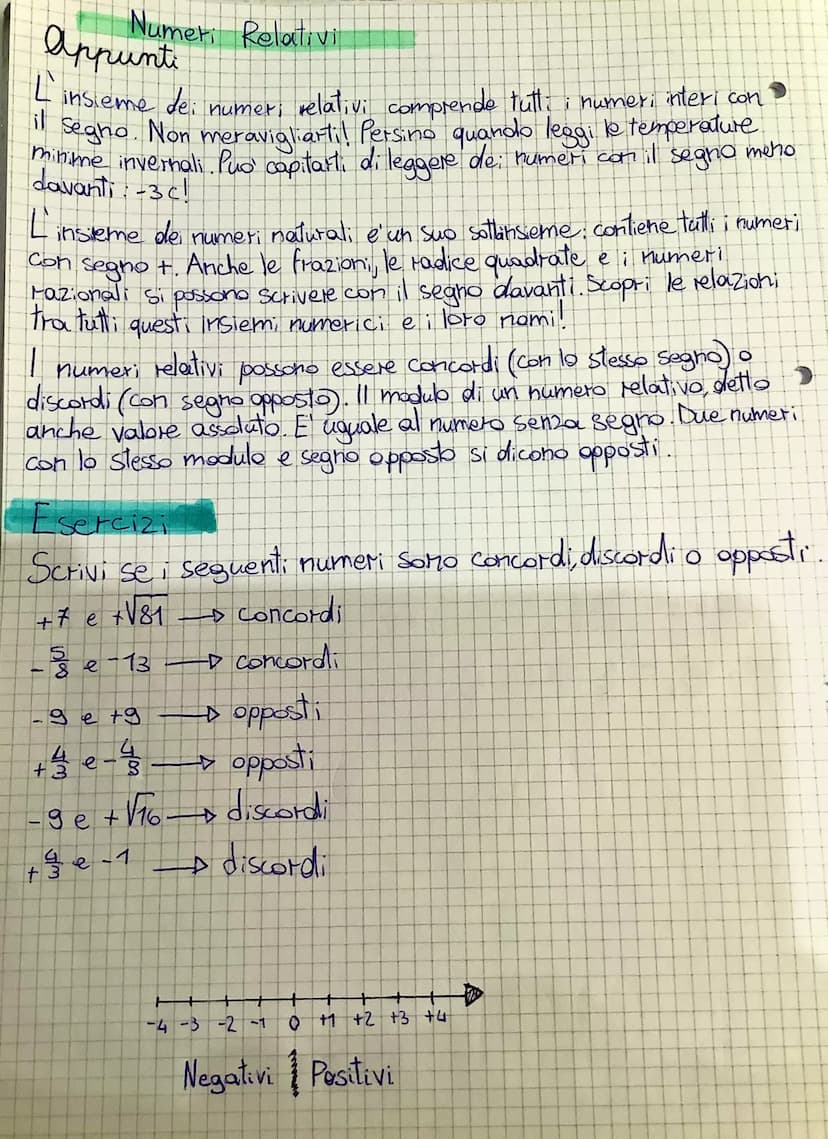 Numeri Relativi
appunti
L'insieme dei numeri relativi comprende tutti i numeri interi con
il segno. Non meravigliarti! Persino quando leggi le temperature
minime invernali. Puo' capitarti di leggere dei numeri con il segno meno
davanti: -3c!
L'insieme dei numeri naturali e' un suo sottoinsieme: contiene tutti i numeri
con segno +. Anche le frazioni, le radice quadrate e i numeri
razionali si possono scrivere con il segno davanti. Scopri le relazioni
tra tutti questi insiemi numerici e i loro nomi!
I numeri relativi possono essere concordi (con lo stesso segno) o
discordi (con segno opposto). Il modulo di un numero relativo, detto
anche valore assoluto. E' uguale al numero senza segno. Due numeri
con lo stesso modulo e segno opposto si dicono opposti.
Esercizi
Scrivi se i seguenti numeri sono concordi, discordi o opposti.
+7 e +√81 → concordi
-5/8 e -13 → concordi
-9 e +9 → opposti
+4/3 e -4/3 → opposti
-9 e +√16 → discordi
+4/3 e -1 → discordi
-4 -3 -2 -1 0 +1 +2 +3 +4
Negativi Positivi